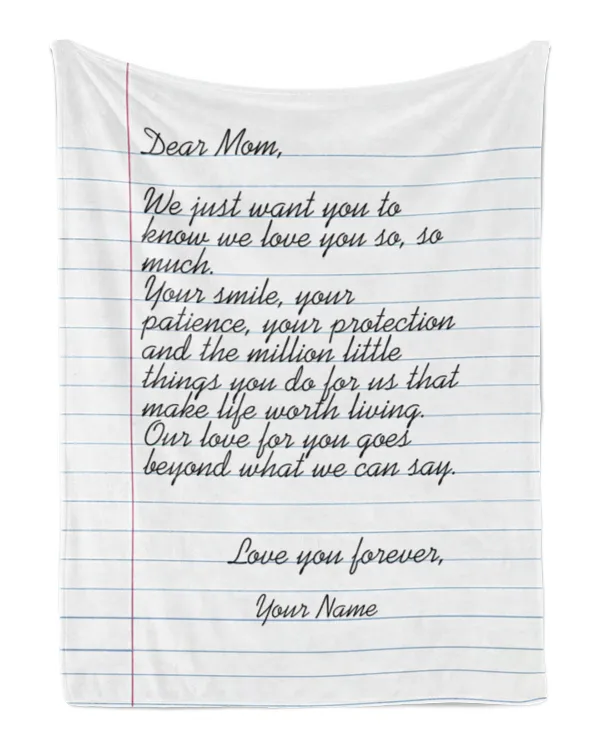 Dear Mom,
We just want you to
know we love you so, so
much.
Your smile, your
patience, your protection
and the million little
things you do for us that
make life worth living.
Our love for you goes
beyond what we can say.
Love you forever,
Your Name